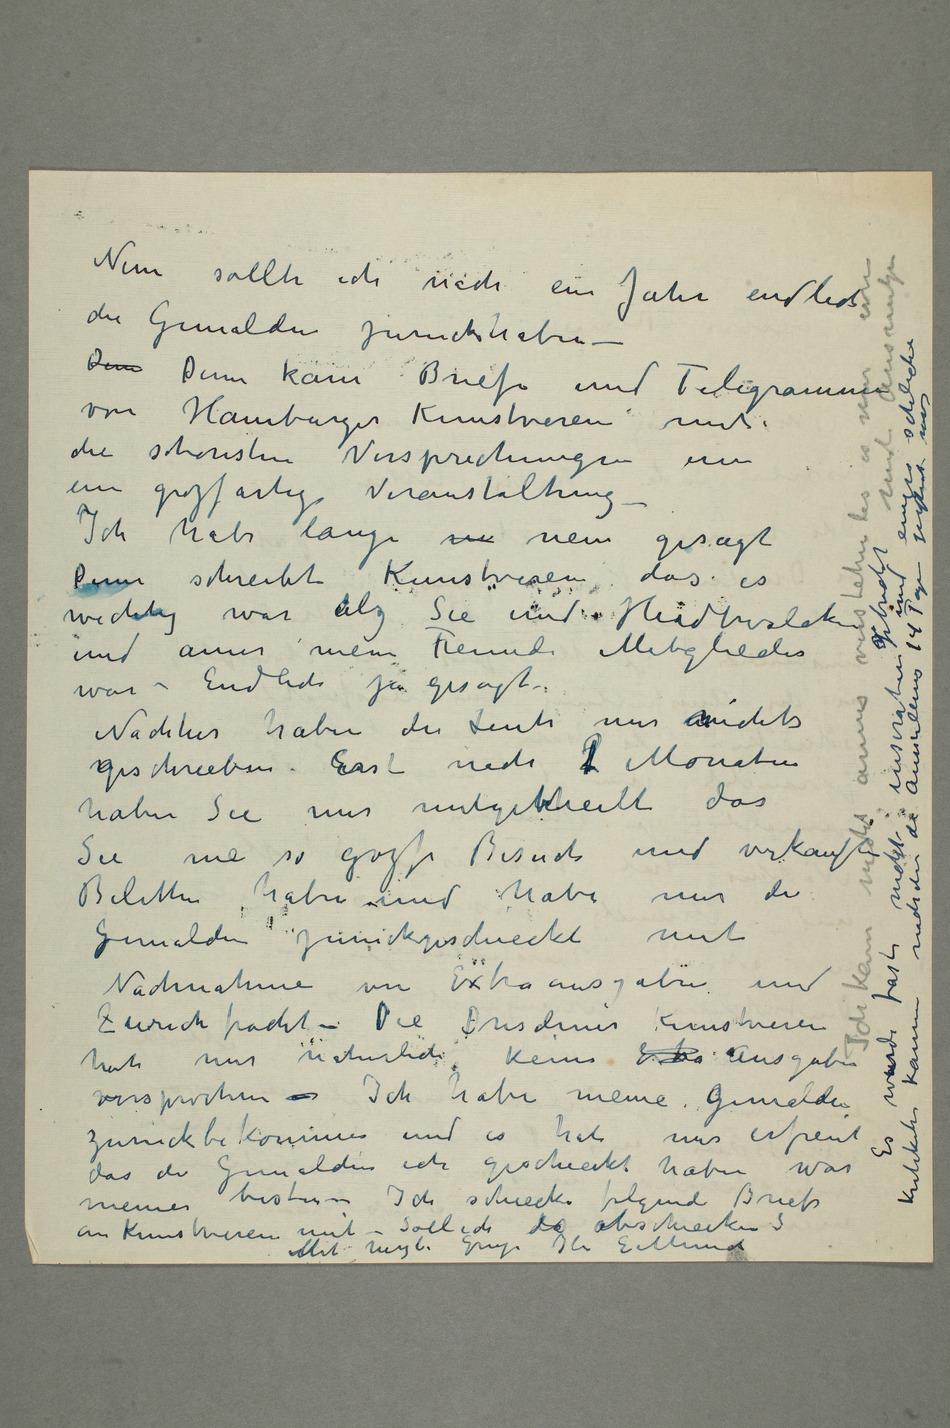 Nun sollte ich nach ein Jahr endlich
die Gemälden zurückhaben –
Denn Denn kam Briefe und Telegrammen
von Hamburger Kunstverein mit
die schönsten Versprechungen um
ein großartige Veranstaltung –
Ich habe lange nein gesagt
Denn schreibt Kunstverein das es
wichtig war als Sie und
und anner mein Freunde Mitglieder
war – Endlich ja gesagt.
Nachher haben die Leute mir nichts
geschrieben. Erst nach 2 Monaten
haben Sie mir mitgetheilt das
Sie nie so große Besuch und verkaufte
Biletten haben und habe mir die
Gemälden zurückgeschieckt mit
Nachnahme von Extraausgaben und
Zurückfracht – Die Dresdener Kunstverein
hat mir natürlich keine Ausgaben
versprochen – Ich habe meine Gemälden
zurückbekommen und es hat mir erfreut
das die Gemälden ich geschieckt haben war
meiner besten – Ich schiecke folgende Briefe
an Kunstverein mit – Soll ich es abschiecken?
Mit Gruße Ihr E Munch
Ich kann nicht annes verstehen das es nur
Es wurde fast nicht inseraten gebracht und einige schlechte
Kritiken kamen nachdem die